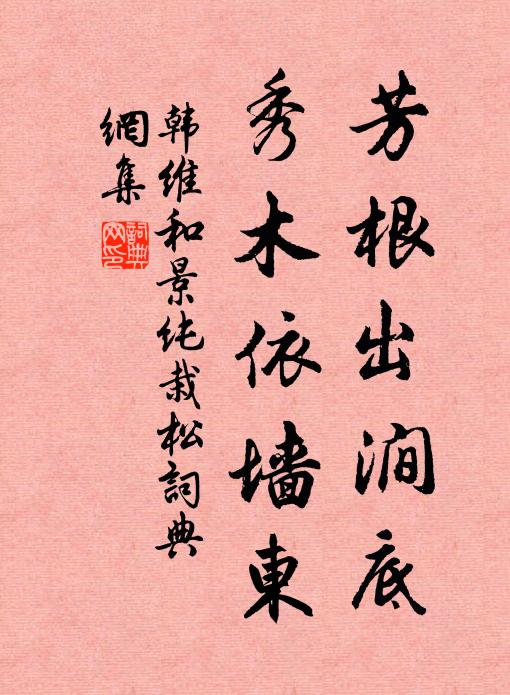 芳根出澗底
秀木依墙東
韩维和景纯栽松詞典
網集
詞典
网印